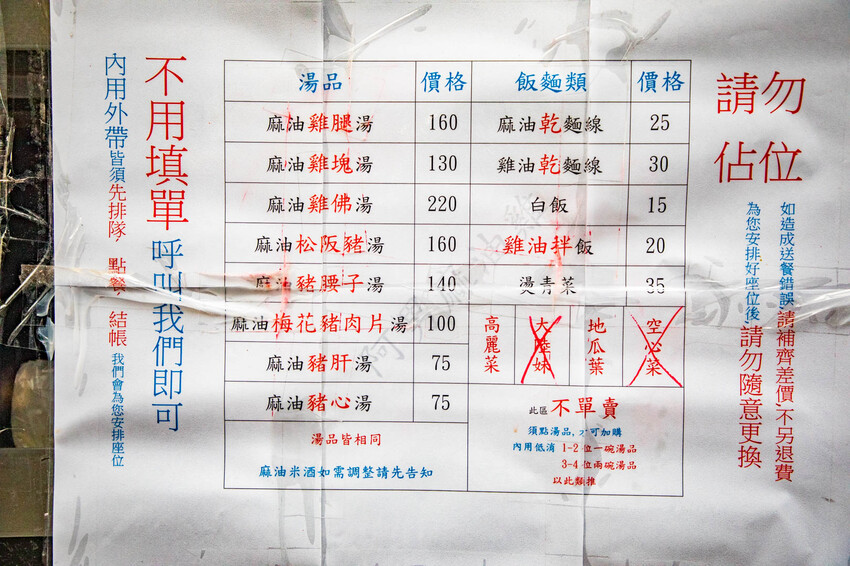 請勿
佔位
如造成送餐錯誤請補齊差價,不另退費
為您安排好座位後,請勿隨意更換
湯品 價格 飯麵類 價格
麻油雞腿湯 160 麻油乾麵線 25
麻油雞塊湯 130 雞油乾麵線 30
麻油雞佛湯 220 白飯 15
麻油松阪豬湯 160 雞油拌飯 20
麻油豬腰子湯 140 燙青菜 35
麻油梅花豬肉片湯 100
麻油豬肝湯 75
麻油豬心湯 75
高麗菜 大陸妹 地瓜葉 空心菜
湯品皆相同
麻油米酒如需調整請先告知
此區不單賣
須點湯品,才可加購
內用低消 1-2位一碗湯品
3-4位兩碗湯品
以此類推
不用填單 呼叫我們即可
內用外帶皆須先排隊, 點餐, 結帳 我們會為您安排座位